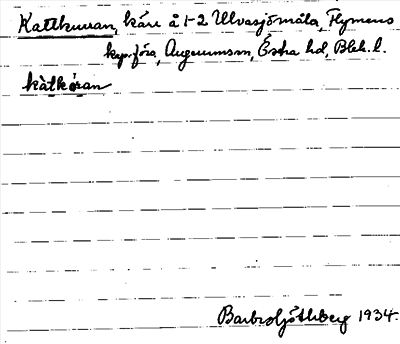 Kattkurran, kärr å 1-2 Ulvasjömåla, Flymens
kap.förs, Augerumssn, Östra hd, Blek. l.
kàtkúran
Barbro Ljóthberg 1934.